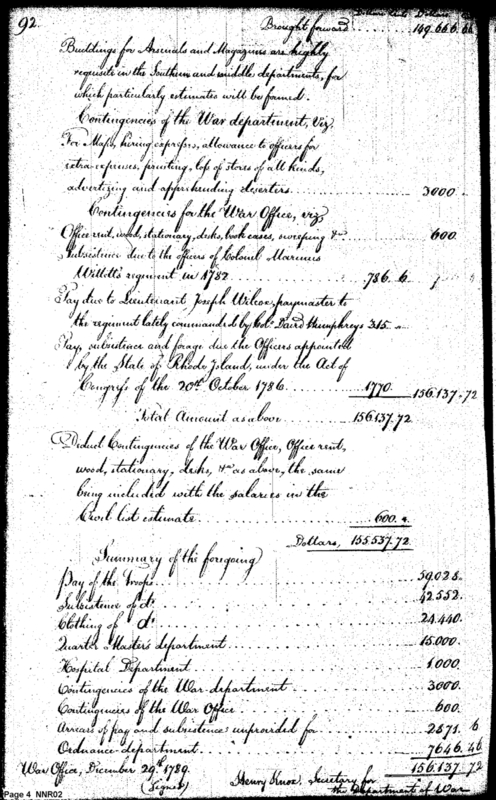 92.
Dollars Cents Dollars
Brought forward ..... 149.666.66
Buildings for Arsenals and Magazines are highly
requisite in the Southern and middle departments, for
which particularly estimates will be formed.
Contingencies of the War department, Viz.
For Maps, hiring expresses, allowance to officers for
extra expenses, printing, loss of stores of all kinds,
advertizing and apprehending deserters ..... 3000
Contingencies for the War Office, viz
Office rent, wood, stationary, desks, book cases, sweeping &c ..... 600.
Subsistence due to the officers of Colonel Marinus
Willett's regiment in 1782 ..... 786.6
Pay due to Lieutenant Joseph Wilcox, paymaster to
the regiment lately commanded by Col. David Humphreys 315.
Pay, subsistence and forage due the Officers appointed
by the State of Rhode Island, under the Act of
Congress of the 20th October 1786 ..... 1770. 156.137.72
Total Amount as above ..... 156.137.72
Deduct Contingencies of the War Office, Office rent,
wood, stationary, desks, &c as above, the same
being included with the salaries in the
Civil list estimate ..... 600.
Dollars, 155.537.72
Summary of the foregoing
Pay of the Troops ..... 59.025.
Subsistence of do ..... 42552.
Clothing of do ..... 24.440.
Quarter Master's department ..... 15.000.
Hospital Department ..... 1.000.
Contingencies of the War department ..... 3000.
Contingencies of the War Office ..... 600.
Arrears of pay and subsistence unprovided for ..... 2871. 6
Ordnance department ..... 7646. 46
War Office, December 29th 1789. 156.137.72
(Signed) Henry Knox, Secretary for
the Department of War
Page 4 NNR02